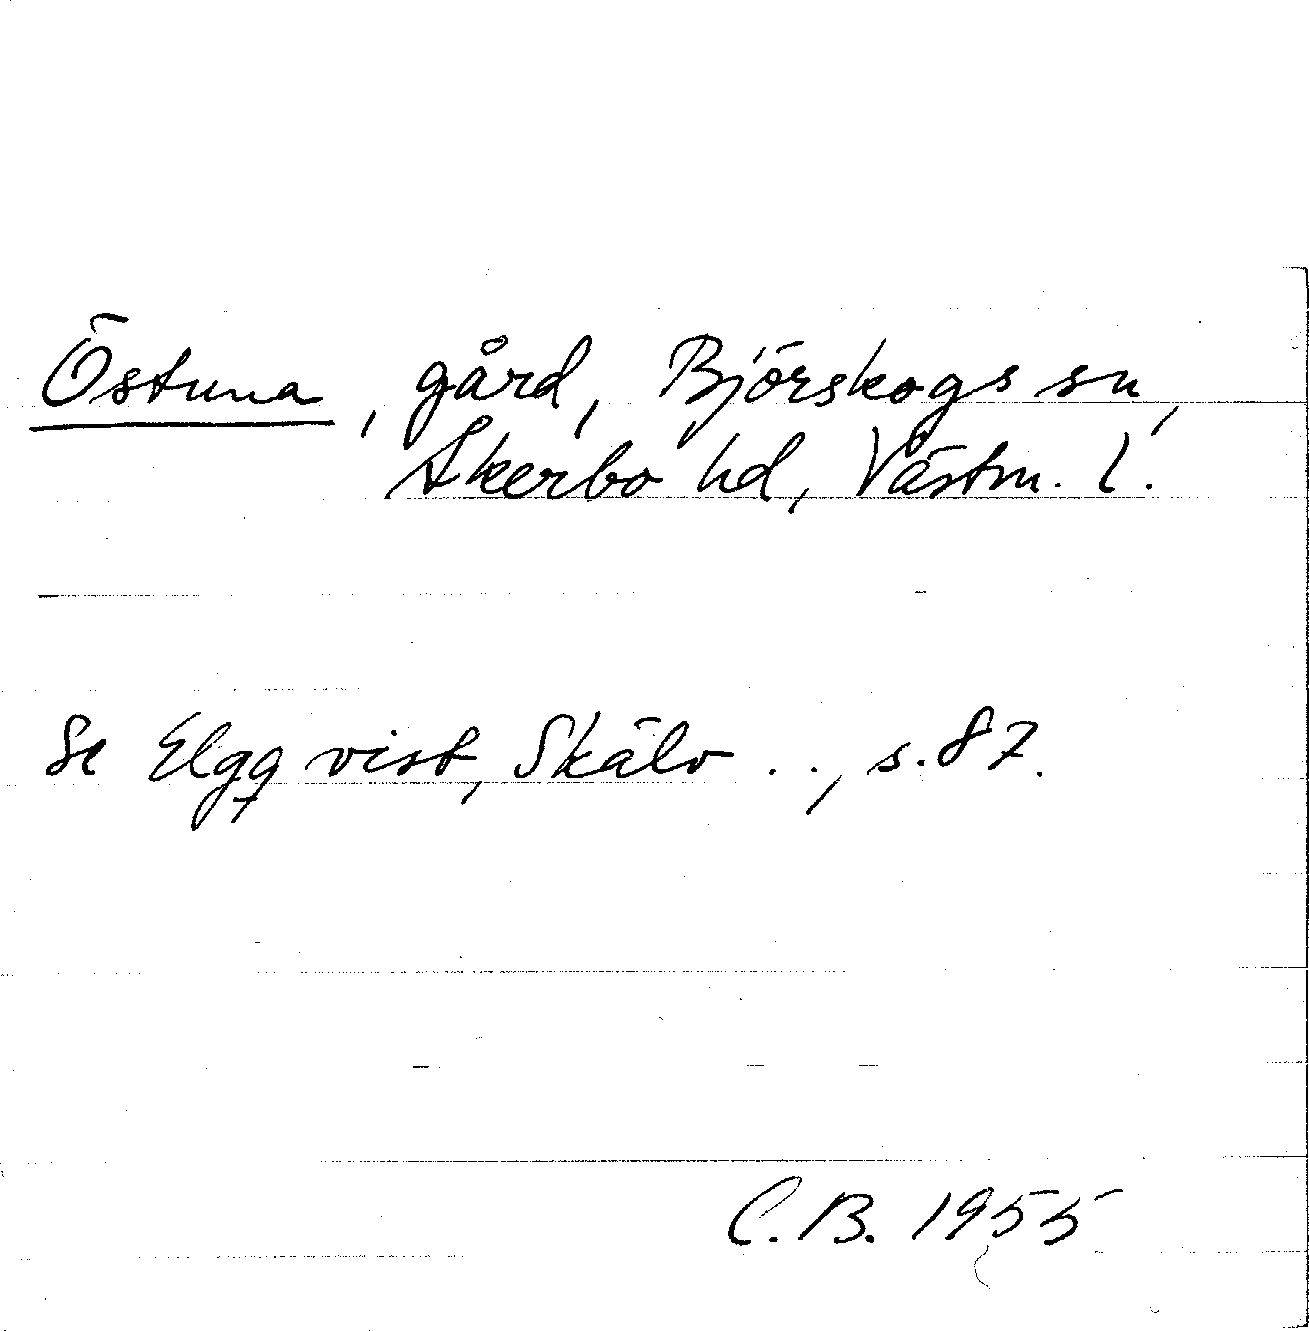 Östuna, gård, Björskogs sn,
Åkerbo hd, Västm. l.
Se Elgqvist, Skälv . ., s. 87.
C.B. 1955